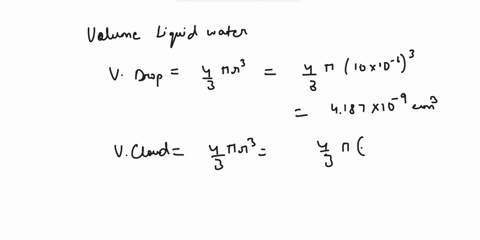 Volume Liquid water
V. Drop = 4/3 πr³ = 4/3 π (10×10⁻⁶)³
= 4.187×10⁻⁹ cm³
V. Cloud = 4/3 πr³ = 4/3 π (